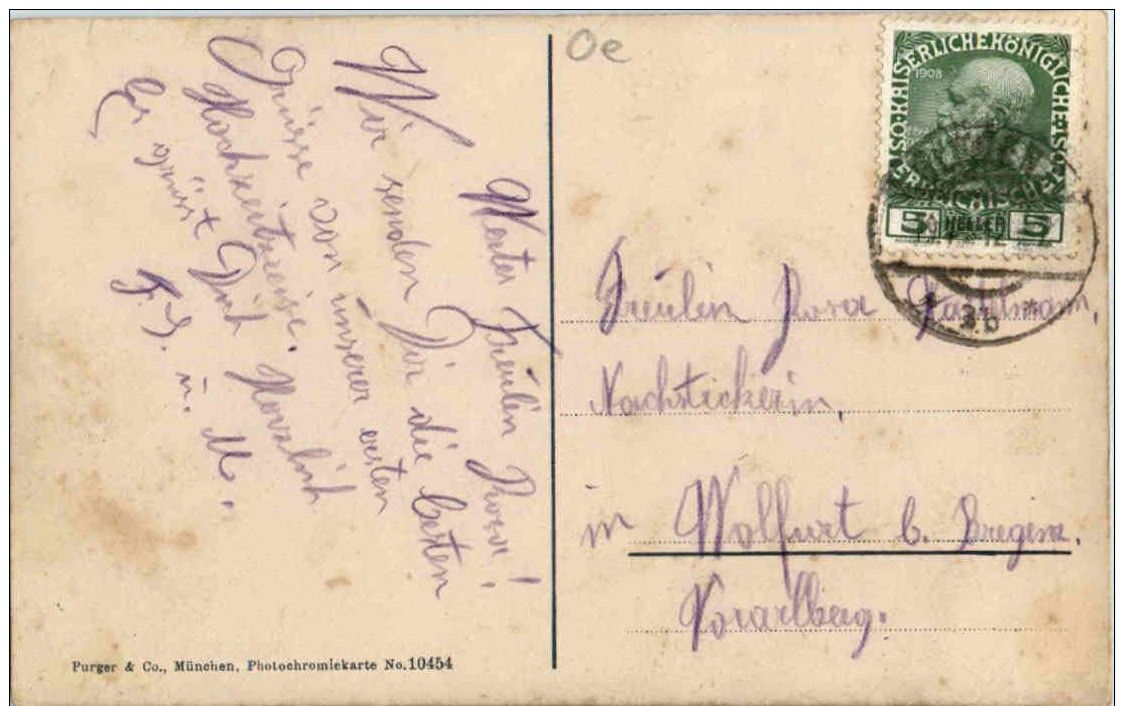 Oe
KAISERLICHE KÖNIGLICHE ÖSTERREICHISCHE
1908
5 HELLER 5
3b
Wertes Freulin Rosa!
Wir senden Dir die besten
Grüsse von unserer ersten
Hochzeitsreise. Herzlich
Es grüsst Dich
F. S. u. M.
Freulin Rosa
Nachstickerin,
in Wolfurt b. Bregenz.
Vorarlberg.
Purger & Co., München, Photochromiekarte No. 10454